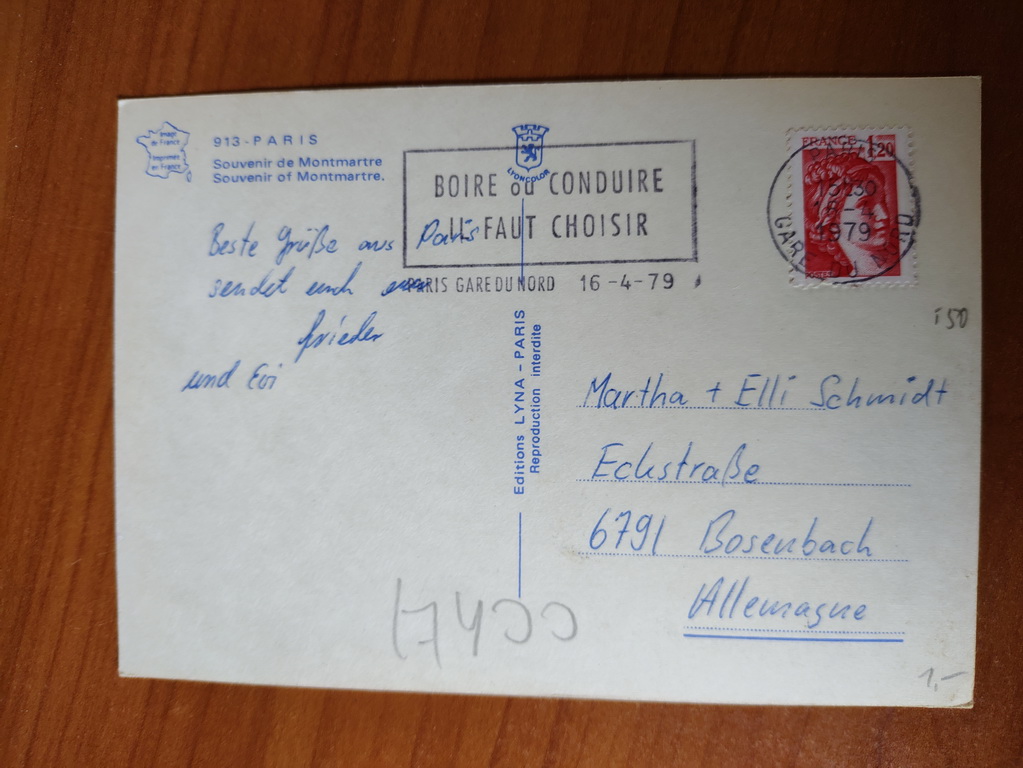 Image
de France
Imprimée
en France
913 - PARIS
Souvenir de Montmartre
Souvenir of Montmartre.
LYONCOLOR
BOIRE ou CONDUIRE
IL FAUT CHOISIR
PARIS GARE DU NORD 16-4-79
FRANCE 1,20
1979
Beste Grüße aus Paris
sendet euch
Frieder
und Evi
Editions LYNA - PARIS
Reproduction interdite
150
Martha + Elli Schmidt
Eckstraße
6791 Bosenbach
Allemagne
1,-